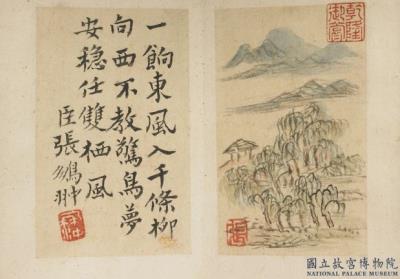 一餉東風入千條柳
向西不教驚鳥夢
安穩任雙栖風
臣張鵬翀
乾隆
御賞
國立故宮博物院
NATIONAL PALACE MUSEUM